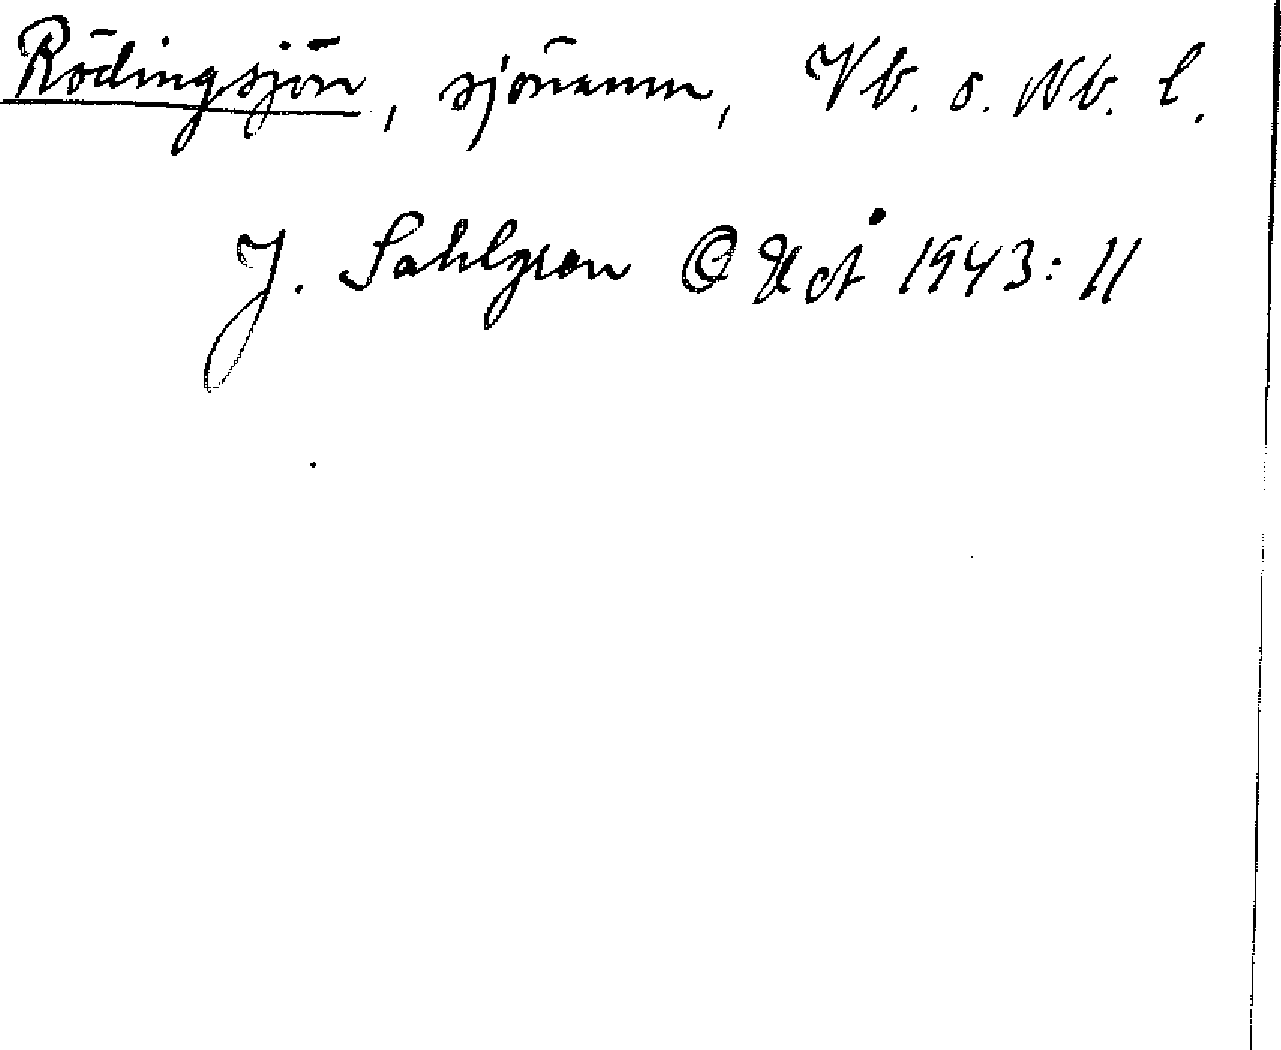 Rödingsjön, sjönamn, Vb. o. Nb. l.
J. Sahlgren 1943: 11